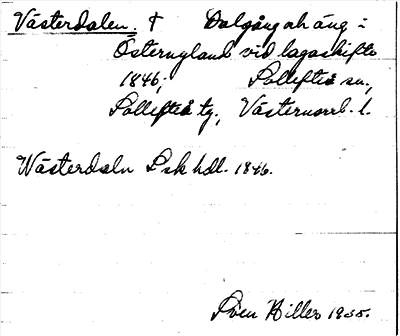 Västerdalen. † Dalgång o h äng i
Östernyland vid lagaskifte
1846; Sollefteå sn.,
Sollefteå tg., Västernorrl. l.
Wästerdaln Lsk hdl. 1846.
Sven Hiller 1935.